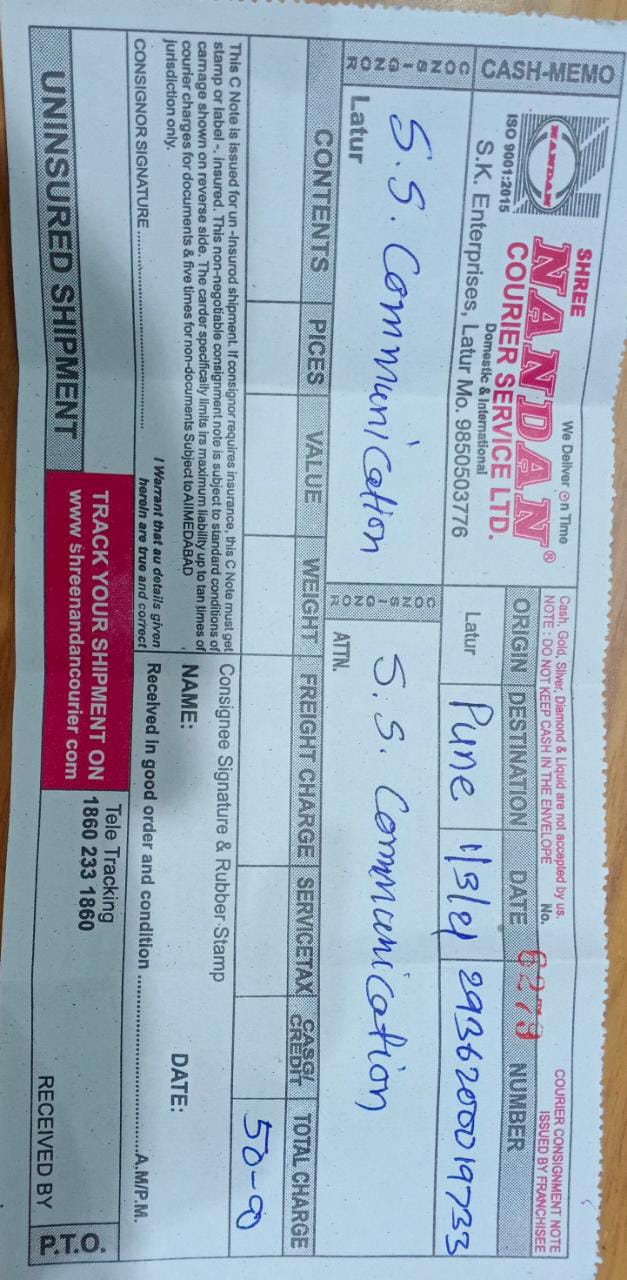 CASH-MEMO
SHREE
NANDAN®
COURIER SERVICE LTD.
We Deliver On Time
Domestic & International
NANDAN
ISO 9001:2015
S.K. Enterprises, Latur Mo. 9850503776
Cash, Gold, Sliver, Diamond & Liquid are not accepted by us.
NOTE : DO NOT KEEP CASH IN THE ENVELOPE
No. 6279
COURIER CONSIGNMENT NOTE
ISSUED BY FRANCHISEE
ORIGIN DESTINATION DATE NUMBER
Latur Pune 1/3/21 2936200019733
CONSI-GNOR
S.S. Communication
Latur
CONSI-GNOR
S.S. Communication
ATTN.
CONTENTS PICES VALUE WEIGHT FREIGHT CHARGE SERVICETAX CASG/ CREDIT TOTAL CHARGE
50-00
This C Note is issued for un -Insurod shipment. If consignor requires insurance, this C Note must get
stamp or label -. insured. This non-negotiable consignment note is subject to standard conditions of
carnage shown on reverse side. The carder specifically limits irs maximum liability up to tan times of
courier charges for documents & five times for non-documents Subject to AIIMEDABAD
jurisdiction only.
I Warrant that au details given
herein are true and correct
CONSIGNOR SIGNATURE
Consignee Signature & Rubber-Stamp
NAME:
DATE:
Received in good order and condition A.M/P.M.
UNINSURED SHIPMENT
TRACK YOUR SHIPMENT ON
www shreenandancourier com
Tele Tracking
1860 233 1860
RECEIVED BY
P.T.O.